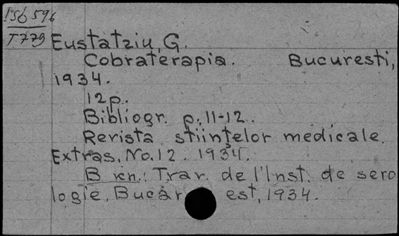 156596
T779
Eustatziu, G.
Cobraterapia. Bucuresti,
1934.
12p.
Bibliogr. p. 11-12.
Revista stiințelor medicale.
Extras, No. 12. 1934.
B кн.: Trav. de l'Inst. de sero
logie, Bucar est, 1934.